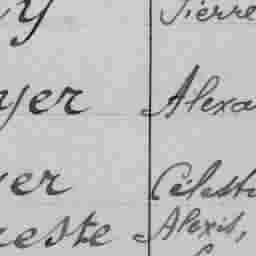 y Pierre
yer Alexa
er Célest
este Alexis,